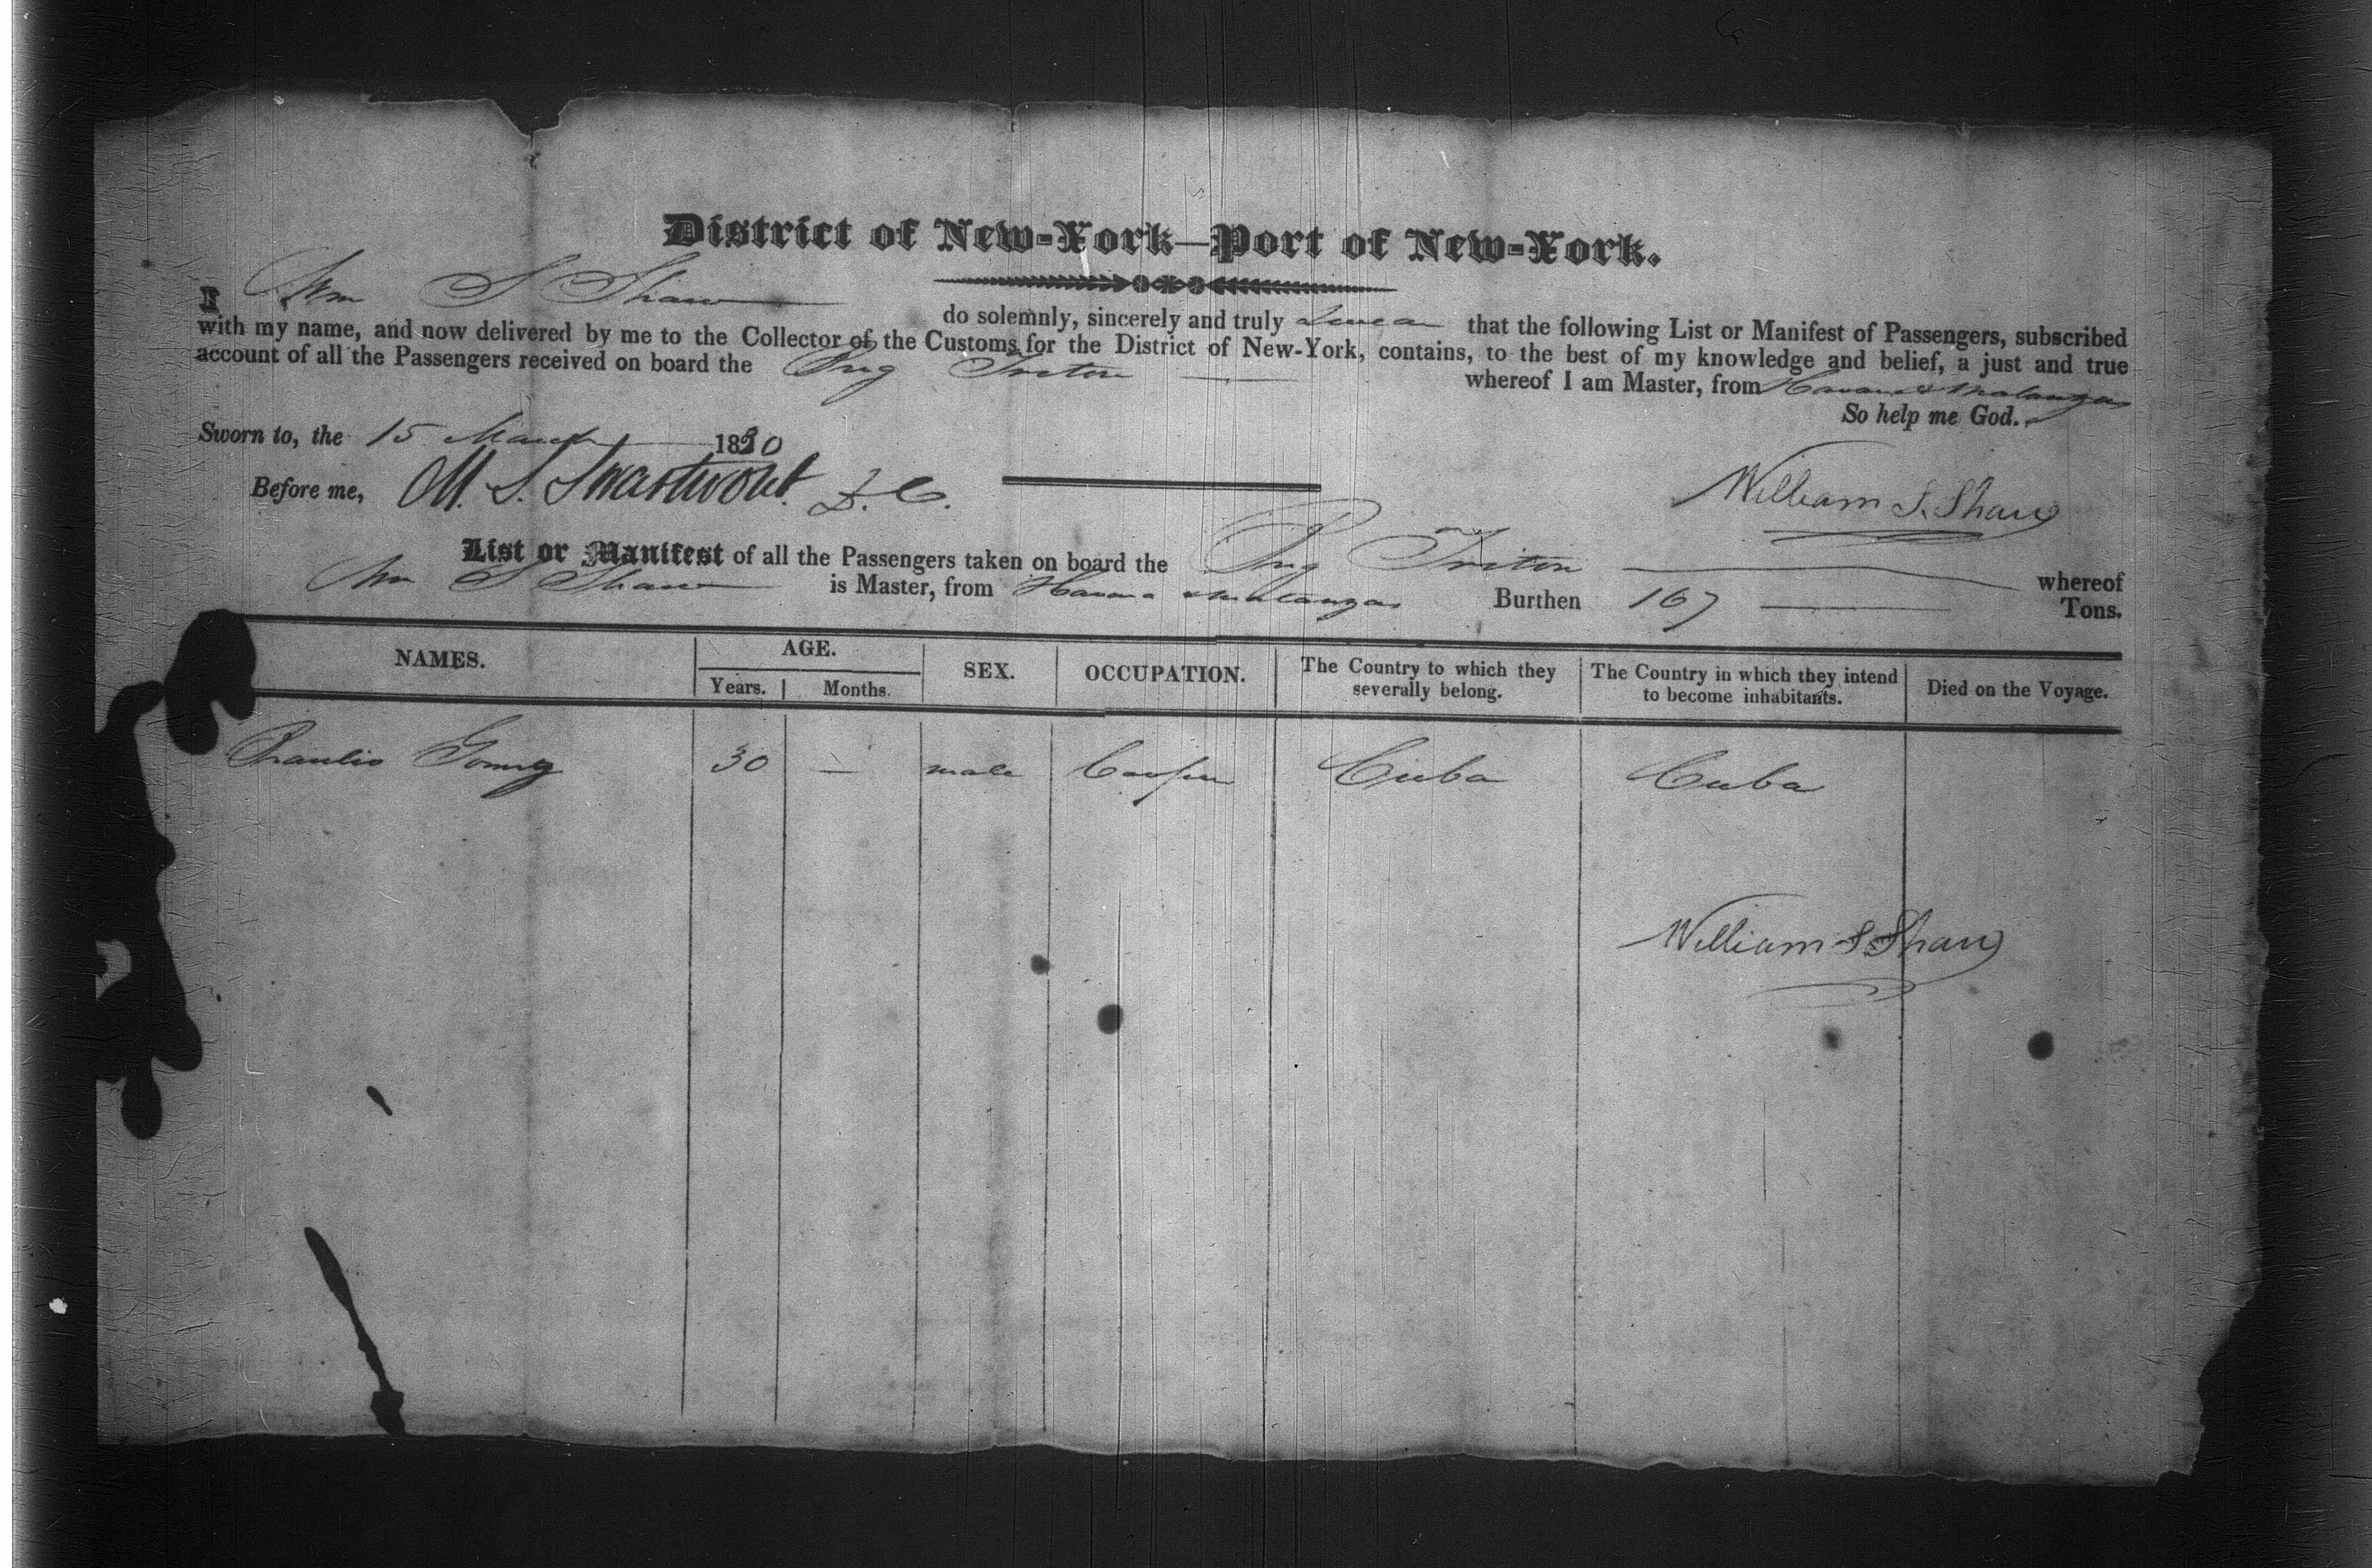 District of New-York—Port of New-York.
I Wm S Shaw do solemnly, sincerely and truly swear that the following List or Manifest of Passengers, subscribed
with my name, and now delivered by me to the Collector of the Customs for the District of New-York, contains, to the best of my knowledge and belief, a just and true
account of all the Passengers received on board the Brig Triton whereof I am Master, from Havana & Matanzas
So help me God.
Sworn to, the 15 March 1830
Before me, M. S. Swartwout. D. C.
William S. Shaw
List or Manifest of all the Passengers taken on board the Brig Triton whereof
Wm S Shaw is Master, from Havana & Matanzas Burthen 167 Tons.
NAMES. AGE. SEX. OCCUPATION. The Country to which they severally belong. The Country in which they intend to become inhabitants. Died on the Voyage.
Years. Months.
30 — male Cooper Cuba Cuba
William S Shaw